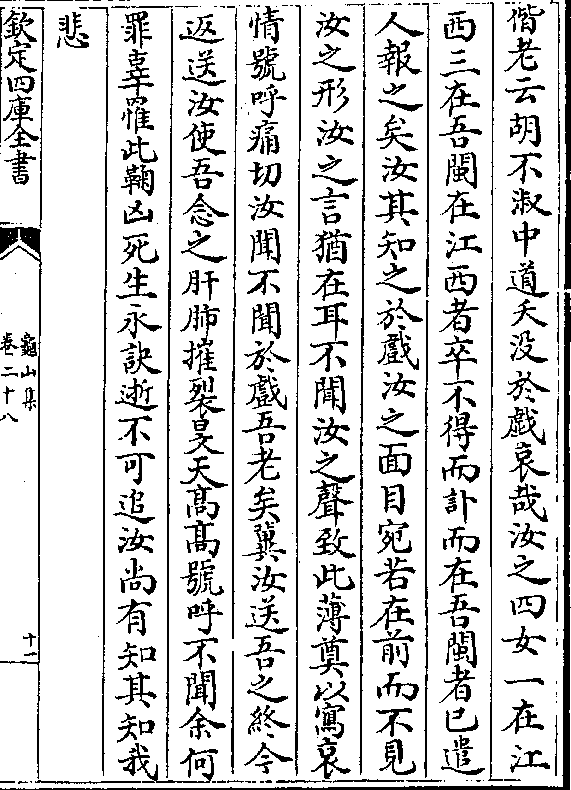 偕老云胡不淑中道夭没於戲哀哉汝之四女一在江
西三在吾閩在江西者卒不得而訃而在吾閩者已遣
人報之矣汝其知之於戲汝之面目宛若在前而不見
汝之形汝之言猶在耳不聞汝之聲致此薄奠以寫哀
情號呼痛切汝聞不聞於戲吾老矣冀汝送吾之終今
返送汝使吾念之肝肺摧裂旻天髙髙號呼不聞余何
罪辜罹此鞠凶死生永訣逝不可追汝尚有知其知我
悲
欽定四庫全書
龜山集
卷二十八
十一